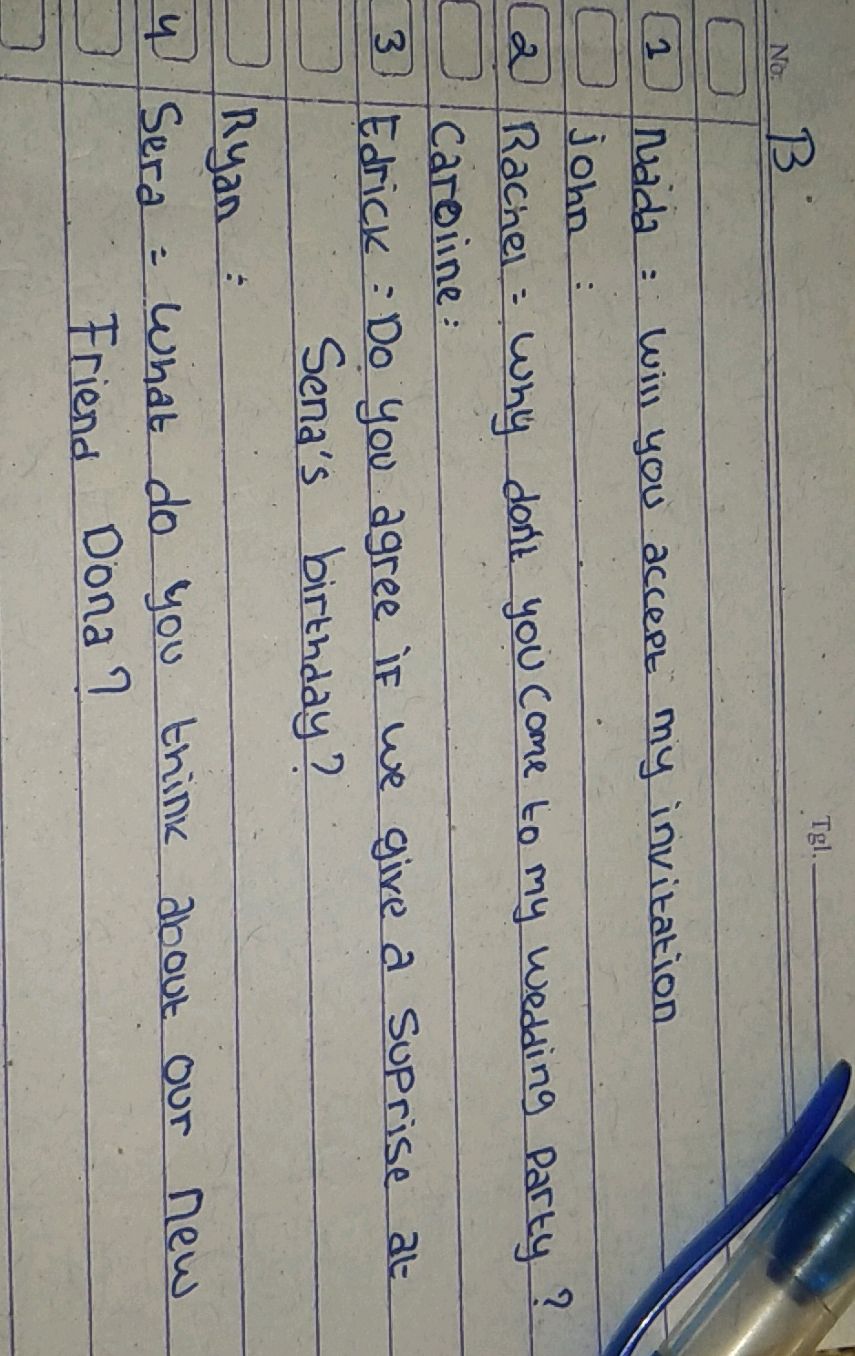 No.
B
Tgl.
1 Nada = Will you accept my invitation
john :
2 Rachel = Why don't you come to my wedding party ?
Caroline :
3 Edrick = Do you agree if we give a suprise at
Sena's birthday ?
Ryan :
4 Sera = What do you think about our new
Friend Dona ?